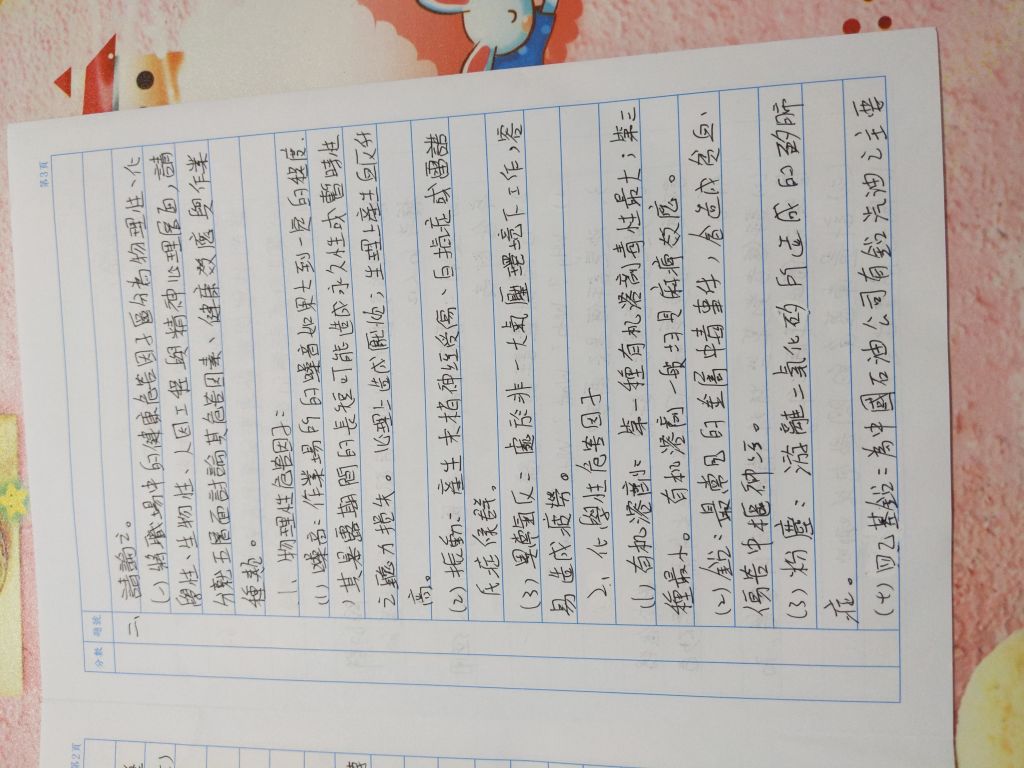 第3頁
分數 題號
二、請論之。
(一)將職場中的健康危害因子區分為物理性、化
學性、生物性、人因工程與精神心理層面，請
分就五層面討論其危害因素、健康效應與作業
種類。
1、物理性危害因子：
(1)噪音：作業場所的噪音如果大到一定的程度
，其暴露期間的長短可能造成永久性或暫時性
之聽力損失。心理上造成煩惱；生理上產生血壓升
高。
(2)振動：產生末梢神經受傷、白指症或雷諾
氏症候群。
(3)異常氣壓：處於非一大氣壓環境下工作，容
易造成疲勞。
2、化學性危害因子
(1)有机溶劑：第一種有机溶劑毒性最大；第三
種最小。有机溶劑一般均具麻痺效應。
(2)鉛：最常見的金屬中毒事件，會造成貧血、
傷害中樞神經。
(3)粉塵：游離二氧化矽所造成的矽肺
症。
(七)四乙基鉛：為中國石油公司有鉛汽油之主要
第2頁